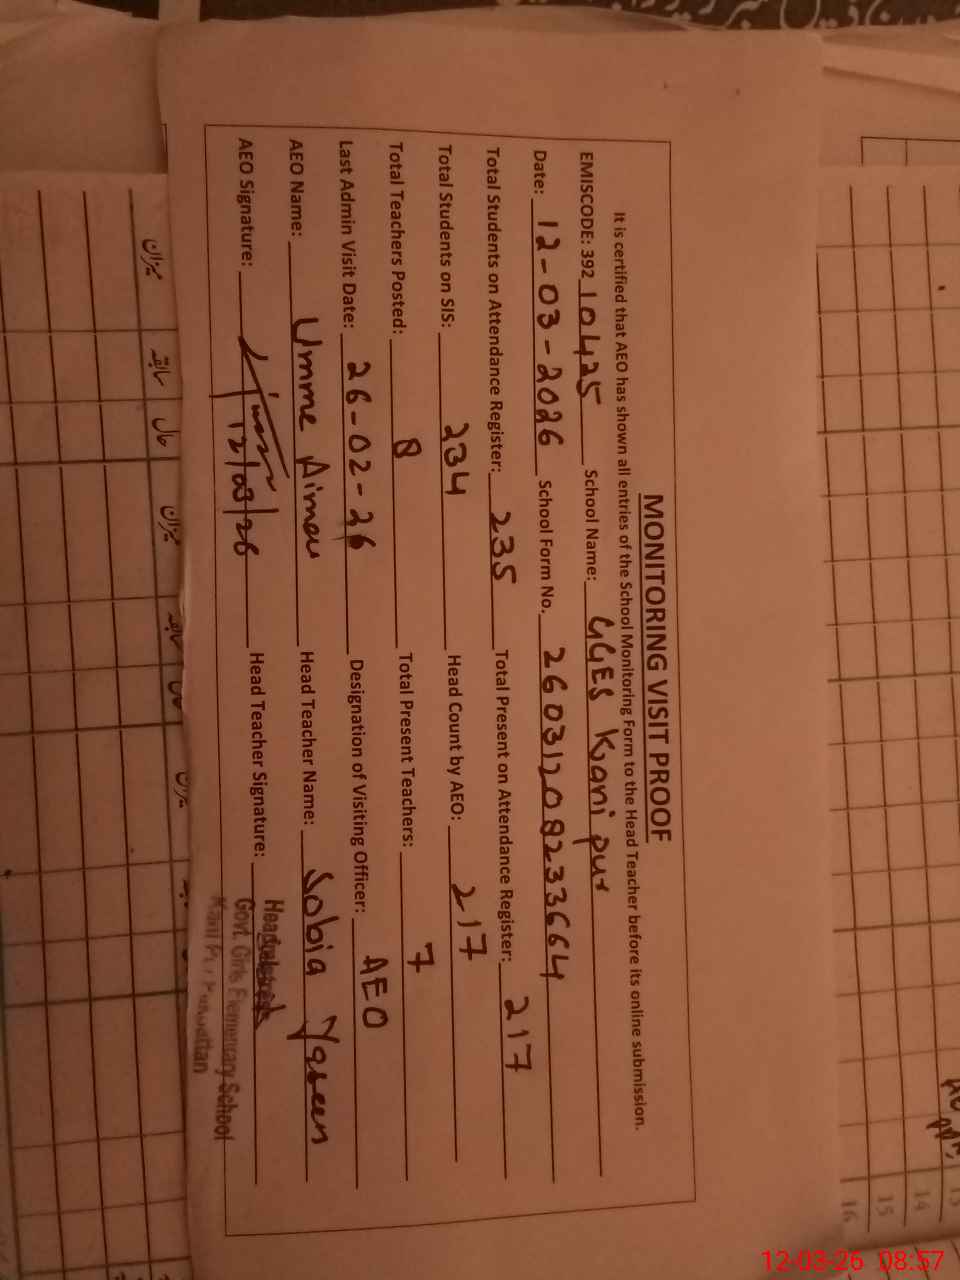 MONITORING VISIT PROOF
It is certified that AEO has shown all entries of the School Monitoring Form to the Head Teacher before its online submission.
EMISCODE: 392 10425 School Name: GGES Kani pur
Date: 12-03-2026 School Form No. 26031208233664
Total Students on Attendance Register: 235 Total Present on Attendance Register: 217
Total Students on SIS: 234 Head Count by AEO: 217
Total Teachers Posted: 8 Total Present Teachers: 7
Last Admin Visit Date: 26-02-26 Designation of Visiting Officer: AEO
AEO Name: Umme Aimen Head Teacher Name: Sobia Yaseen
AEO Signature: 12/03/26 Head Teacher Signature:
Headmistress
Govt. Girls Elementary School
Kani Pur
میزان
سابقہ
حال
میزان
سابقہ
13
14
15
16
12-03-26 08:57